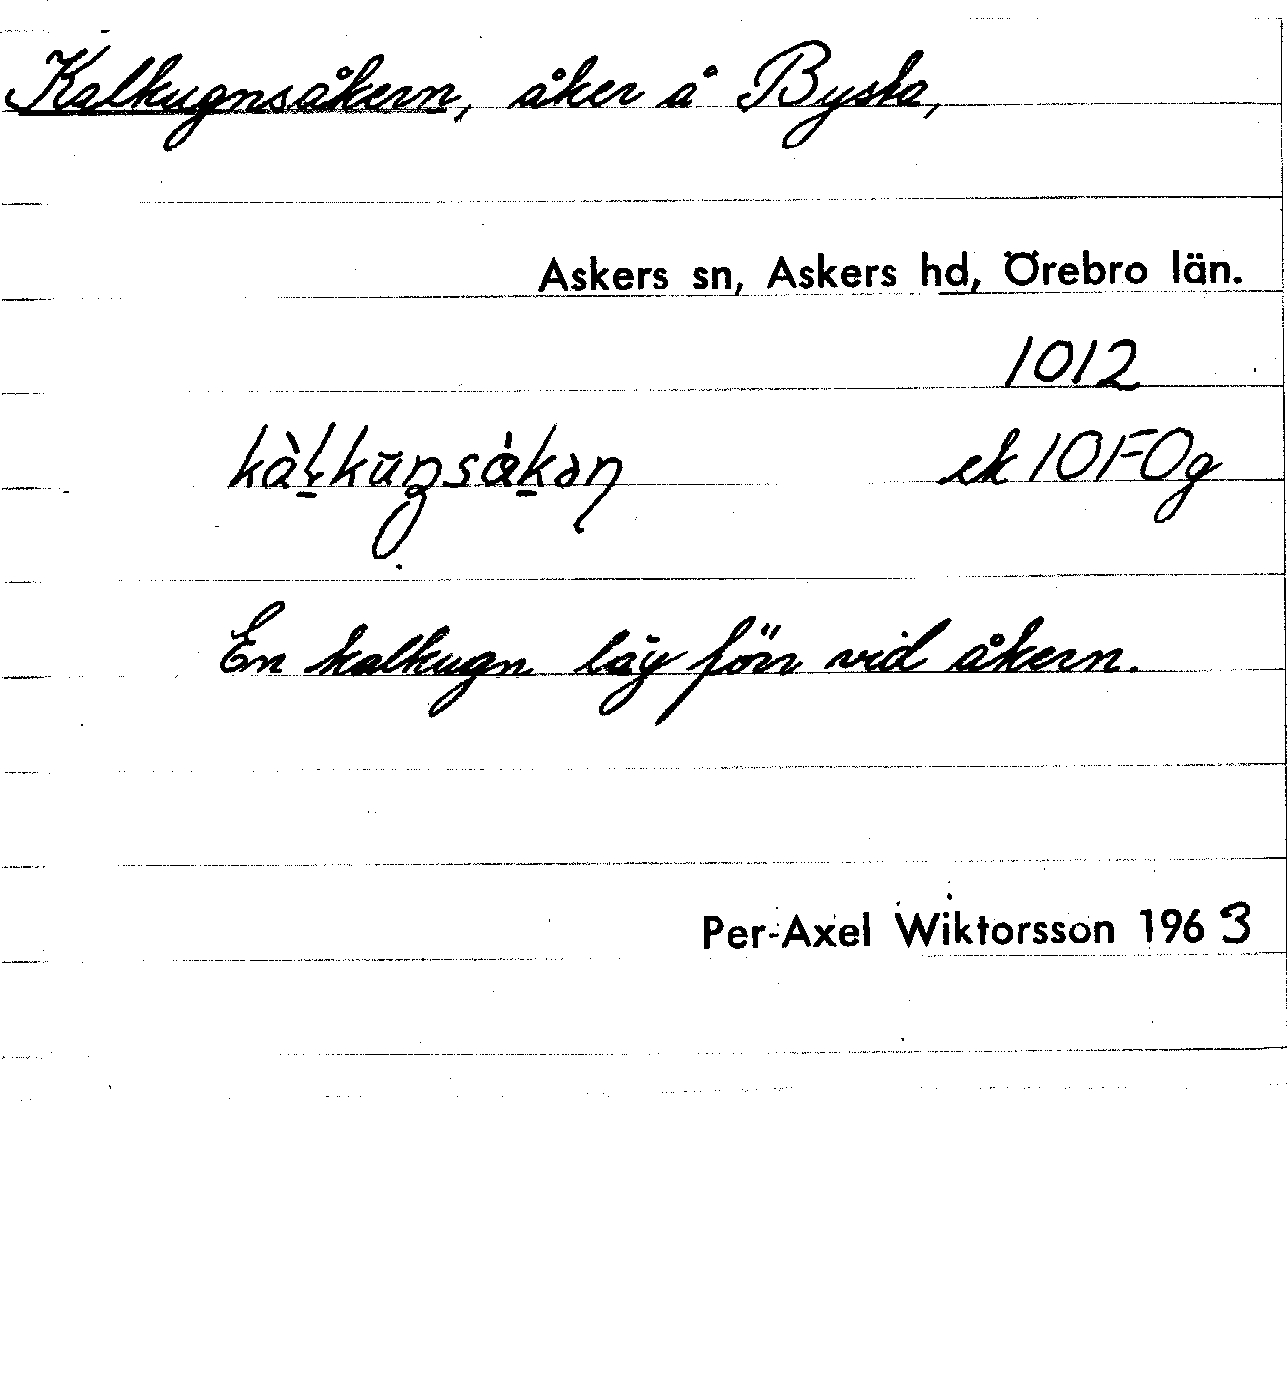 Kalkugnsåkern, åker å Bysta,
Askers sn, Askers hd, Örebro län.
1012
ek 10 F Og
En kalkugn låg förr vid åkern.
Per-Axel Wiktorsson 1963